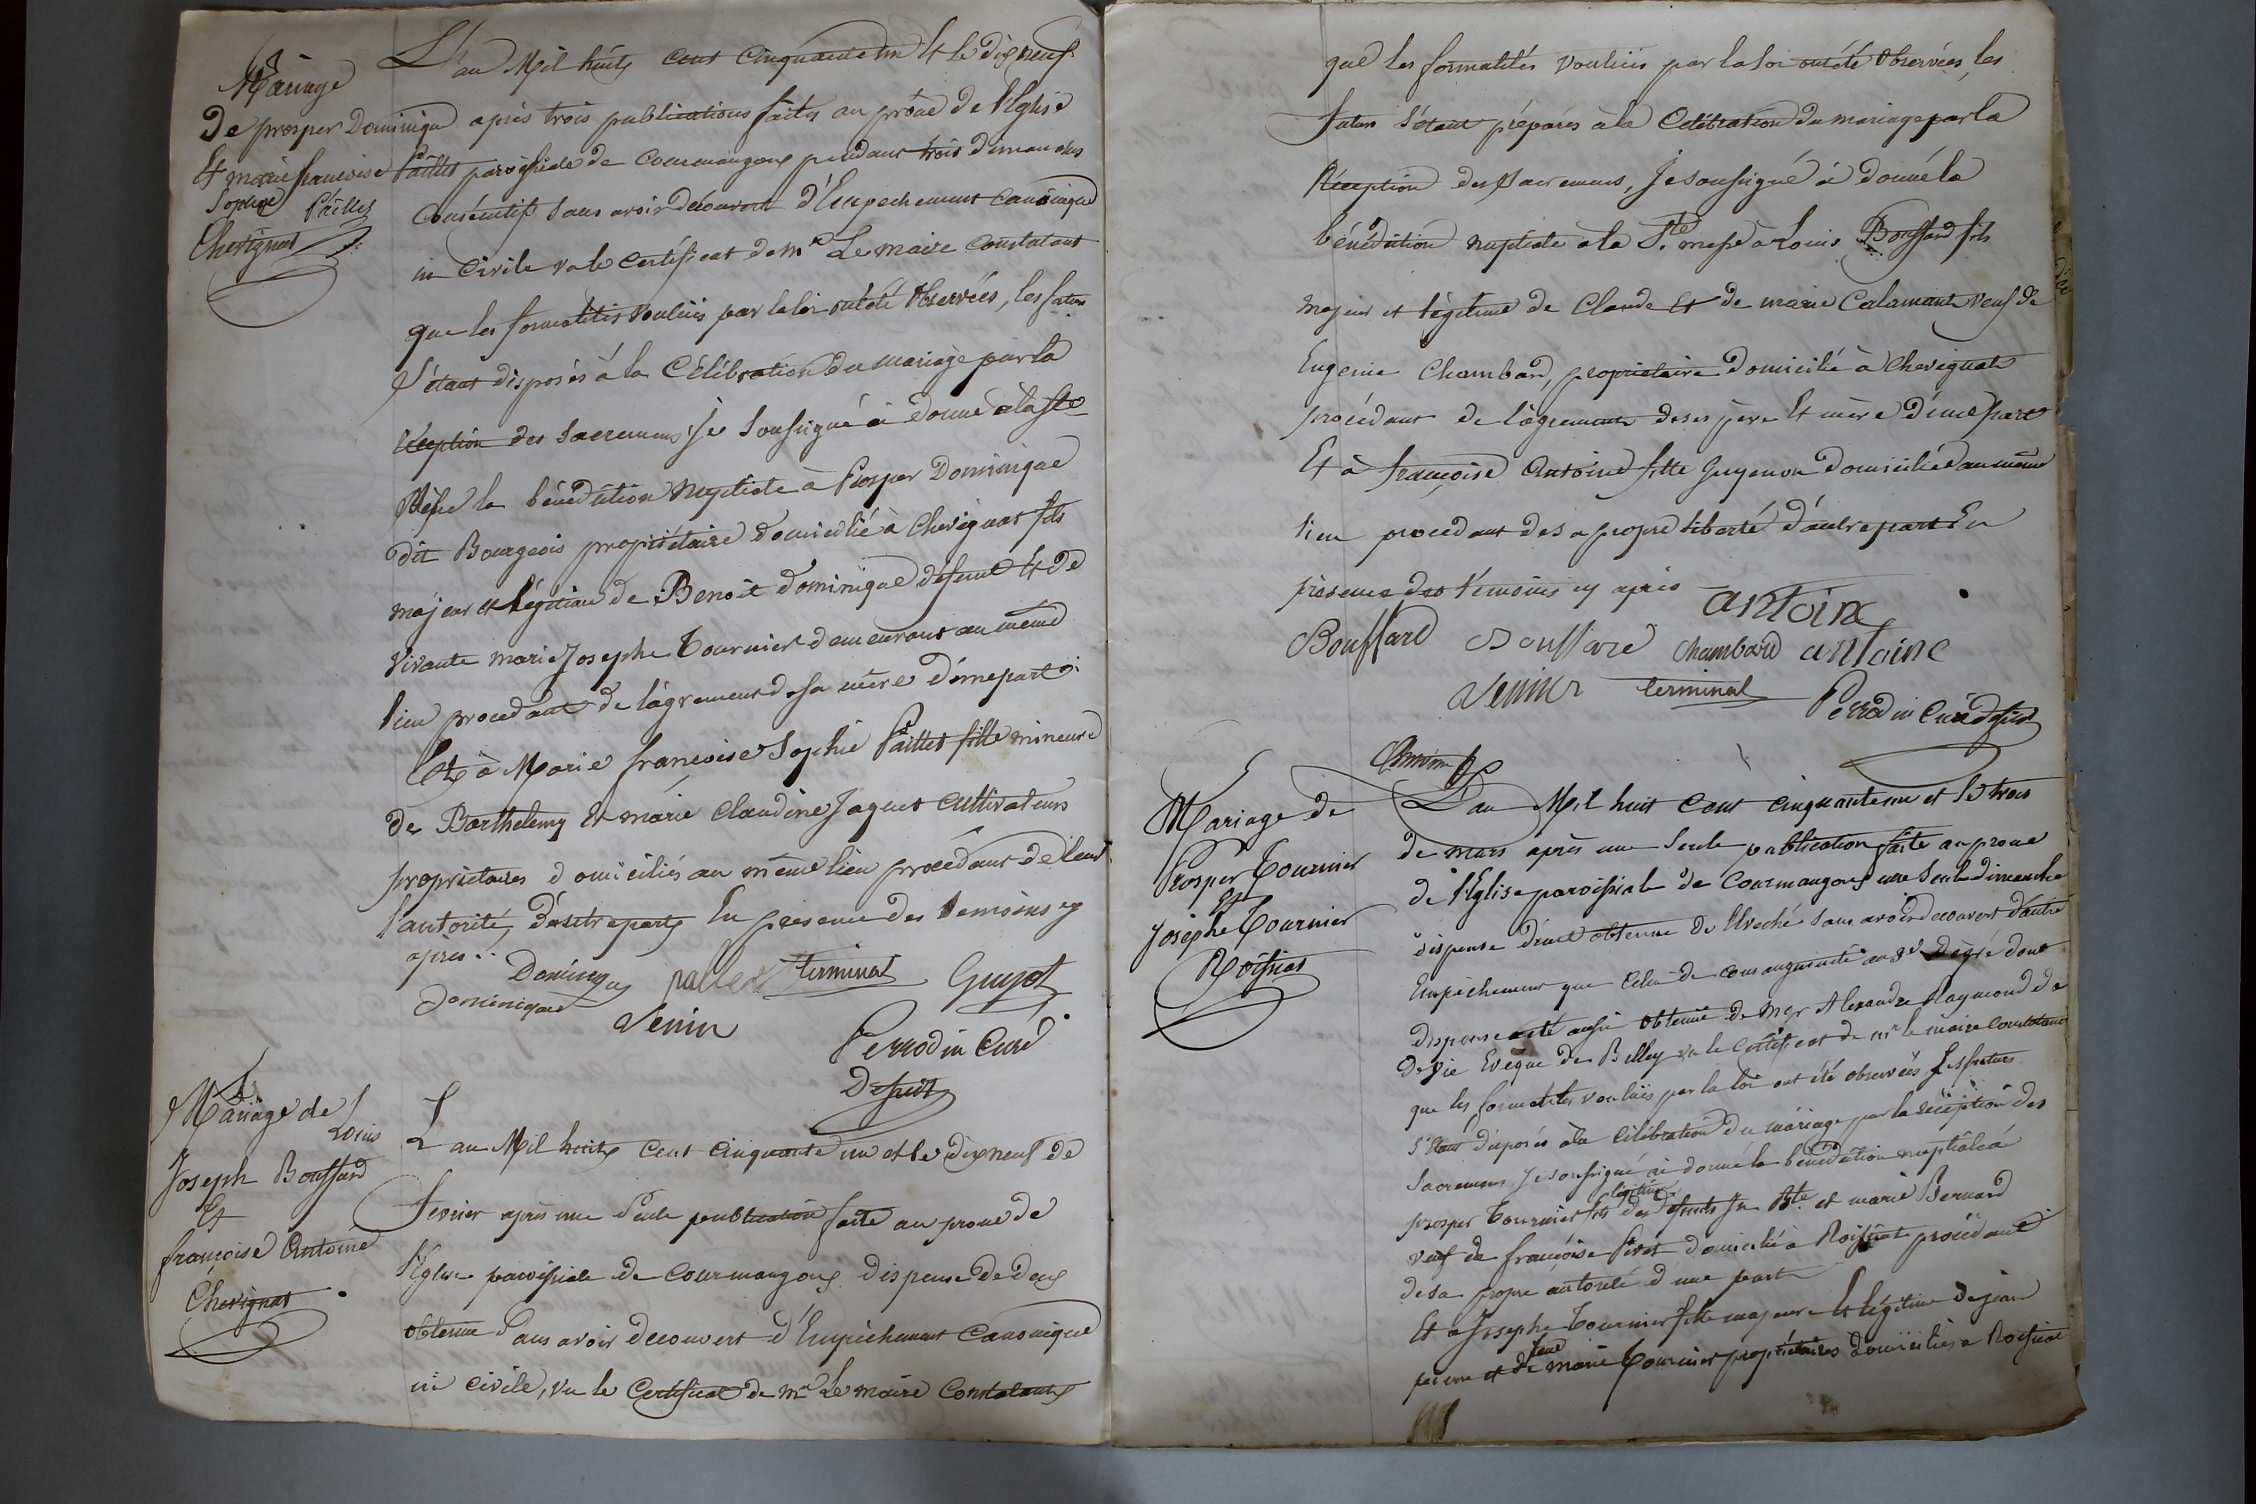 Mariage
De prosper Dominique
Et marie francoise
Sophie Paillet
Chevignat
L'an Mil huit cent cinquante un Et le dix neuf
après trois publications faites au prône de l'Eglise
paroissiale de Courmangoux pendant trois dimanches
Consécutifs sans avoir découvert d'Empechement canonique
ni Civile vu le certificat de mr Le maire constatant
que les formalités voulues par la loi ont été observées, les futurs
s'étant disposés à la Célébration du mariage par la
réception des Sacremens Je soussigné ai donné à la ste
Messe la bénédiction Nuptiale à Prosper Dominique
dit Bourgeois propriétaire domicilié à Chevignat fils
majeur et légitime de Benoit dominique défunt Et de
vivante marie Josephe Tournier demeurant au même
lieu procedant de l'agrement de sa mère d'une part
Et à Marie francoise Sophie Paillet fille mineure
de Barthelemy Et marie Claudine Jaquet cultivateurs
propriétaires domiciliés au même lieu procédant de leur
autorité, d'autre part En présence des temoins cy
après.
Dominique paillet terminal Guyot
Dominique
Venin
Perrodin Curé
Desservt
Mariage de
Louis
Joseph Bouffard
Et
françoise Antoine
Chevignat
L'an Mil huit cent cinquante un et le dix neuf de
fevrier après une seule publication faite au prone de
l'Eglise paroissiale de Courmangoux dispense de deux
obtenue sans avoir decouvert d'Empêchement Canonique
ni civile, vu le Certificat de mr Le maire Constatant
que les formalités voulues par la loi ont été observées, les
futurs s'étant préparés à la Célébration du mariage par la
Réception des sacremens, Je soussigné ai donné la
bénédiction nuptiale à la Ste messe à Louis Bouffard fils
majeur et légitime de Claude Et de marie Calamant veuf de
Eugenie Chambard, propriétaire domicilié à Chevignat
procédant de l'agrement de ses père Et mère d'une part
Et à françoise Antoine fille Guyenon domiciliée au même
lieu procedant de sa propre liberté d'autre part En
présence des témoins cy après
antoine
Bouffard Bouffard Chambard antoine
Venin terminal
Perrodin Curé Desservt
Mariage de
Prosper Tournier
Et
Josephe Tournier
Roissiat
L'an Mil huit cent cinquante un et le trois
de mars après une seule publication faite au prone
de l'Eglise paroissiale de Courmangoux une seule dimanche
dispense d'une obtenue de l'Eveché sans avoir decouvert d'autre
Empêchement que celui de consanguinité au 3e degré dont
dispense a été aussi obtenue de Mgr Alexandre Raymond de
Devie Evêque de Belley vu le Certificat de mr le maire Constatant
que les formalités voulues par la loi ont été observées Les futurs
s'étant disposés à la célébration du mariage par la réception des
Sacremens Je soussigné ai donné la bénédiction nuptiale à
légitime
prosper Tournier fils des défunts Jn Bte et marie Bernard
veuf de françoise Pivet domicilié à Roissiat procédant
de sa propre autorité d'une part
Et à Josephe Tournier fille majeure Et légitime de jean
feue
pierre et de marie Tournier propriétaires domiciliés à Roissiat